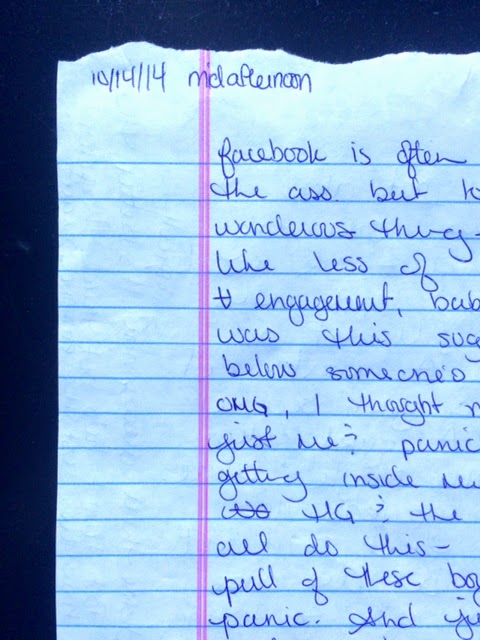 10/14/14 midafternoon
facebook is often
the ass. but
wonderous thing-
like less of
engagement,
was this
below someone's
OMG, I thought
just me? panic
getting inside
TG ? the
all do this-
pull of these
panic. And